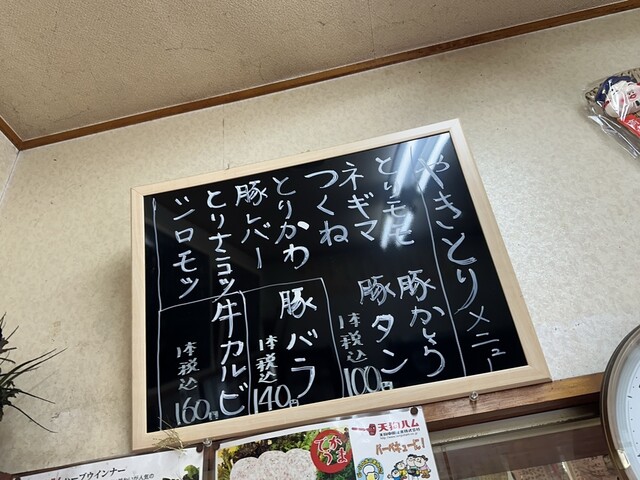 やきとりメニュー
とりモモ
ネギマ
つくね
とりかわ
豚レバー
とりナンコツ
シロモツ
豚かしら
豚タン
1本税込100円
豚バラ
1本税込140円
牛カルビ
1本税込160円
天狗ハム
バーベキューに!
でか
うま